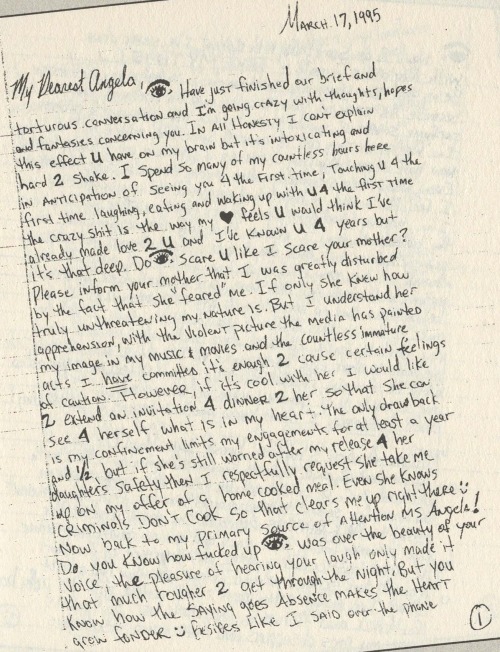 MARCH 17, 1995
My Dearest Angela,
👁 Have just finished our brief and
torturous conversation and I'm going crazy with thoughts, hopes
and fantasies concerning you. In All Honesty I can't explain
this effect U have on my brain but it's intoxicating and
hard 2 shake. I Spend so many of my countless hours here
in Anticipation of seeing you 4 the first time, Touching U 4 the
first time laughing, eating and waking up with U 4 the first time
the crazy shit is the way my ♥ feels U would think I've
already made love 2 U and I've known U 4 years but
it's that deep. Do 👁 scare U like I scare your mother?
Please inform your mother that I was greatly disturbed
by the fact that she "feared" me. If only she knew how
truly unthreatening my nature is. But I understand her
apprehension, with the violent picture the media has painted
my image in my music & movies and the countless immature
acts I have committed it's enough 2 cause certain feelings
of caution. However, if it's cool with her I would like
2 extend an invitation 4 dinner 2 her so that she can
see 4 herself what is in my heart. The only drawback
is my confinement limits my engagements for at least a year
and 1/2 but if she's still worried after my release 4 her
daughters safety then I respectfully request she take me
up on my offer of a home cooked meal. Even She Knows
CRIMINALS DON'T COOK so that clears me up right there :)
Now back to my primary source of Attention Ms Angela!
Do you know how fucked up 👁 was over the beauty of your
voice, the pleasure of hearing your laugh only made it
that much rougher 2 get through the night, But you
know how the SAYING goes Absence makes the HEART
grow fonder :) Besides like I said over the phone
1